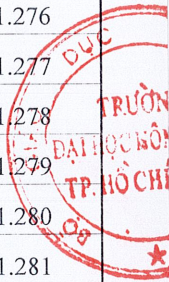 1.276
1.277
1.278
1.279
1.280
1.281
BỘ
DỤC
TRƯỜN
ĐẠI HỌC NÔN
TP. HỒ CHÍ